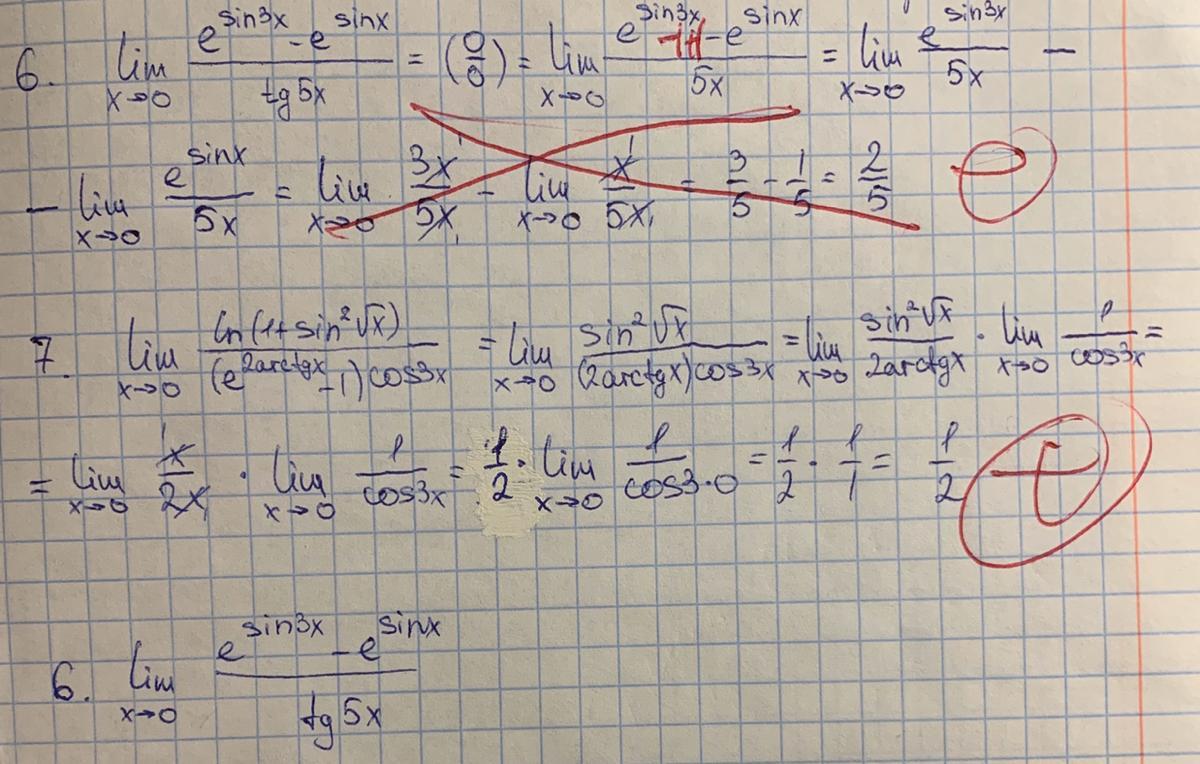 6. lim x→0 (e^sin3x - e^sinx)/(tg5x) = (0/0) = lim x→0 (e^sin3x - e^sinx)/(5x) = lim x→0 (e^sin3x)/(5x) -
- lim x→0 (e^sinx)/(5x) = lim x→0 (3x)/(5x) - lim x→0 (x)/(5x) = 3/5 - 1/5 = 2/5
7. lim x→0 (ln(1+sin²√x))/((e^2arctgx - 1)cos3x) = lim x→0 (sin²√x)/((2arctgx)cos3x) = lim x→0 (sin²√x)/(2arctgx) · lim x→0 1/(cos3x) =
= lim x→0 (x)/(2x) · lim x→0 1/(cos3x) = 1/2 · lim x→0 1/(cos3·0) = 1/2 · 1/1 = 1/2
6. lim x→0 (e^sin3x - e^sinx)/(tg5x)